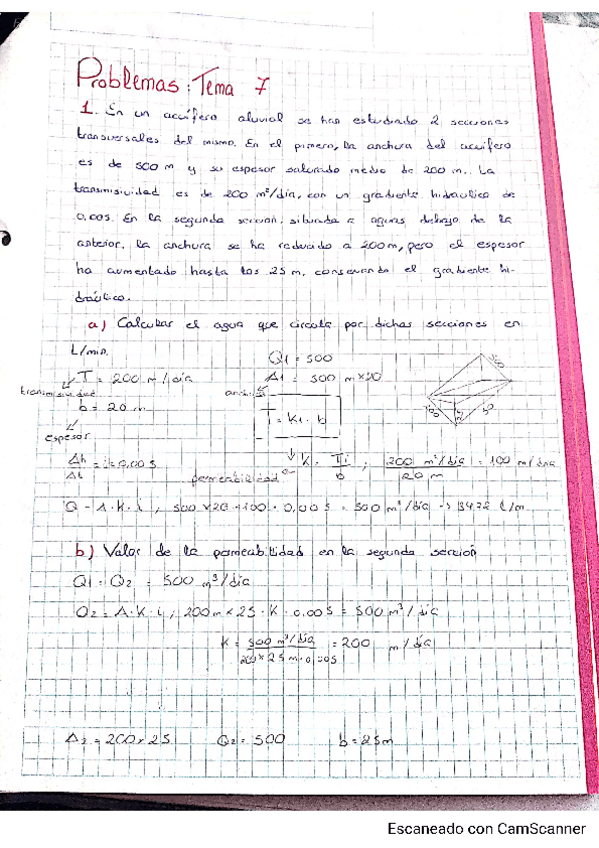 Problemas: Tema 7
1. En un acuífero aluvial se han estudiado 2 secciones
transversales del mismo. En el primero, la anchura del acuífero
es de 500 m y su espesor saturado medio de 200 m. La
transmisividad es de 200 m²/día, con un gradiente hidraulico de
0,005. En la segunda sección, situada a aguas debajo de la
anterior, la anchura se ha reducido a 200m, pero el espesor
ha aumentado hasta los 25 m, conservando el gradiente hi-
dráulico.
a) Calcular el agua que circula por dichas secciones en
L/min.
Q1 = 500
T = 200 m/día
A1 = 500 m x 20
transmisividad
b = 20 m
T = K1 · b
espesor
Δh
= i = 0,005
K = ; 200 m²/día = 100 m/día
b 20 m
permeabilidad
Q = A · K · i , 500 x 20 · 100 · 0,005 = 500 m³/día → L/m
b) Valor de la permeabilidad en la segunda sección
Q1 = Q2 = 500 m³/día
Q2 = A · K · i, 200 m x 25 · K · 0.005 = 500 m³/día
K = 500 m³/día = 200 m/día
200 x 25 m · 0,005
A2 = 200 x 25 Q2 = 500 b = 25m
Escaneado con CamScanner